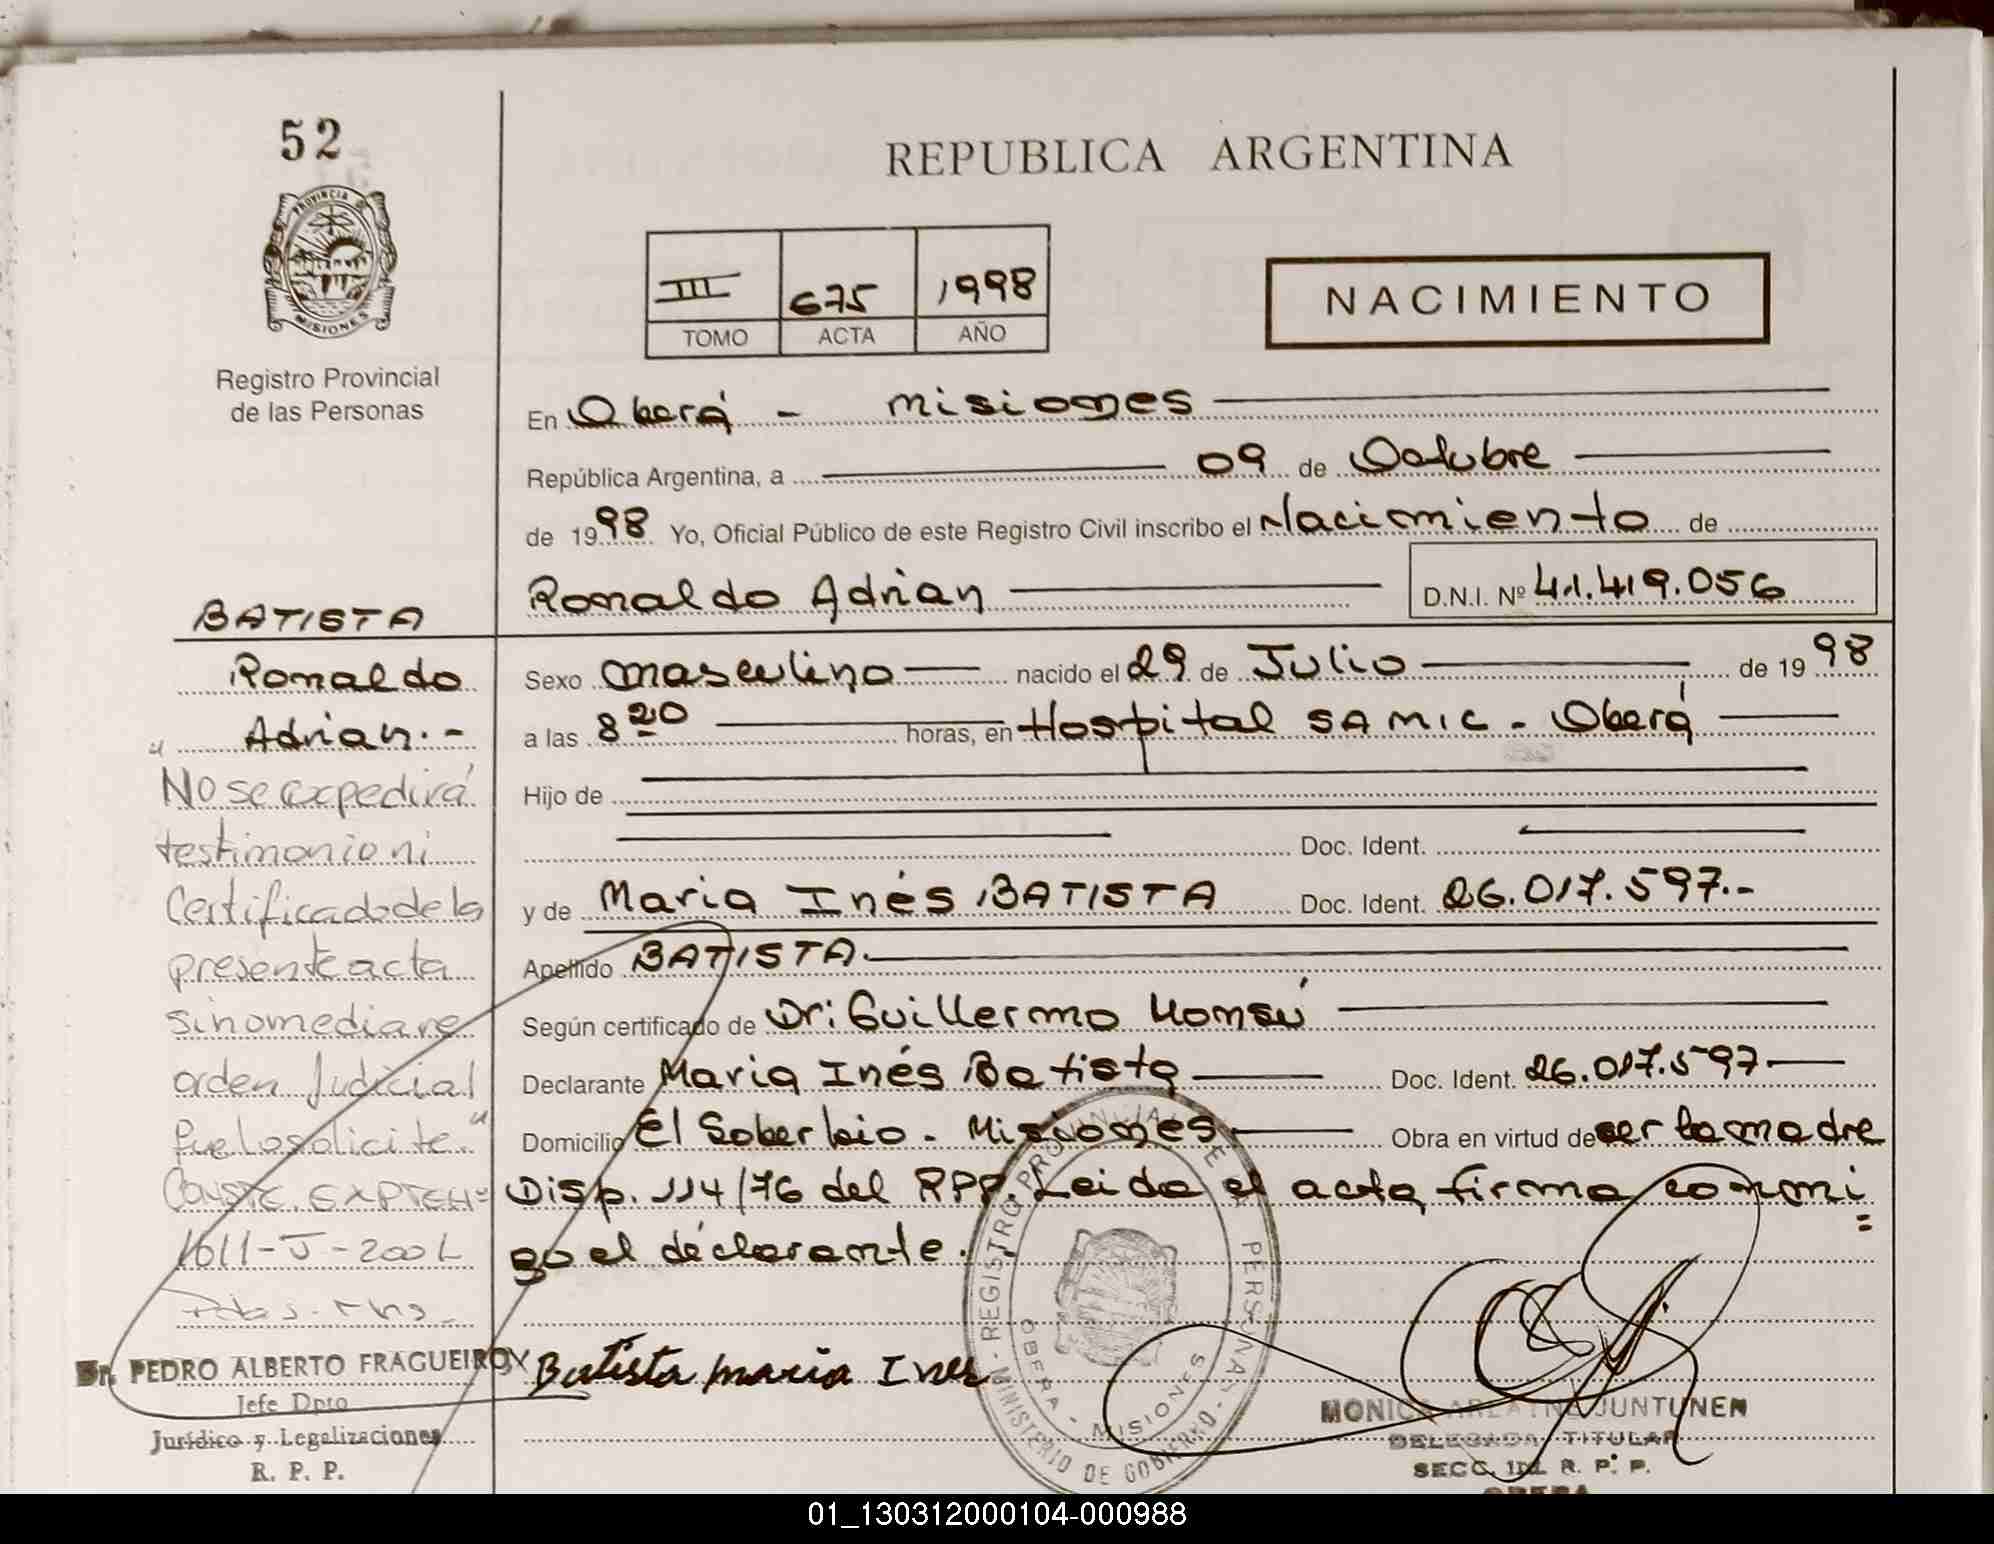 52
PROVINCIA DE
MISIONES
Registro Provincial
de las Personas
BATISTA
Ronaldo
Adrian.-
"No se expedirá
testimonio ni
Certificado de la
presente acta
si no mediare
orden Judicial
que lo solicite."
CONSTE. EXPTE Nº
1611-J-2001
Pdas.
Dr. PEDRO ALBERTO FRAGUEIRO
Jefe Dpto
Jurídico y Legalizaciones
R. P. P.
REPUBLICA ARGENTINA
III 675 1998
TOMO ACTA AÑO
NACIMIENTO
En Oberá - Misiones
República Argentina, a 09 de Octubre
de 1998 Yo, Oficial Público de este Registro Civil inscribo el Nacimiento de
Ronaldo Adrian D.N.I. Nº 41.419.056
Sexo masculino nacido el 29 de Julio de 1998
a las 8 20 horas, en Hospital SAMIC - Oberá
Hijo de
Doc. Ident.
y de Maria Inés BATISTA Doc. Ident. 26.017.597.-
Apellido BATISTA.
Según certificado de Dr: Guillermo
Declarante Maria Inés Batista Doc. Ident. 26.017.597
Domicilio El Soberbio - Misiones Obra en virtud de ser la madre
Disp. 114/76 del RPP. Leida el acta firma conmi
=
go el declarante.
Batista maria Ines
REGISTRO PROVINCIAL DE LAS PERSONAS
MINISTERIO DE GOBIERNO
OBERA - MISIONES
MONICA ARLAYNE JUNTUNEN
DELEGADA TITULAR
SECC. 1ra. R. P. P.
OBERA
01_130312000104-000988